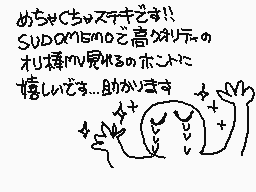 めちゃくちゃステキです!!
SUDOMEMOで高クオリティの
オリ棒MV見れるのホントに
嬉しいです...助かります